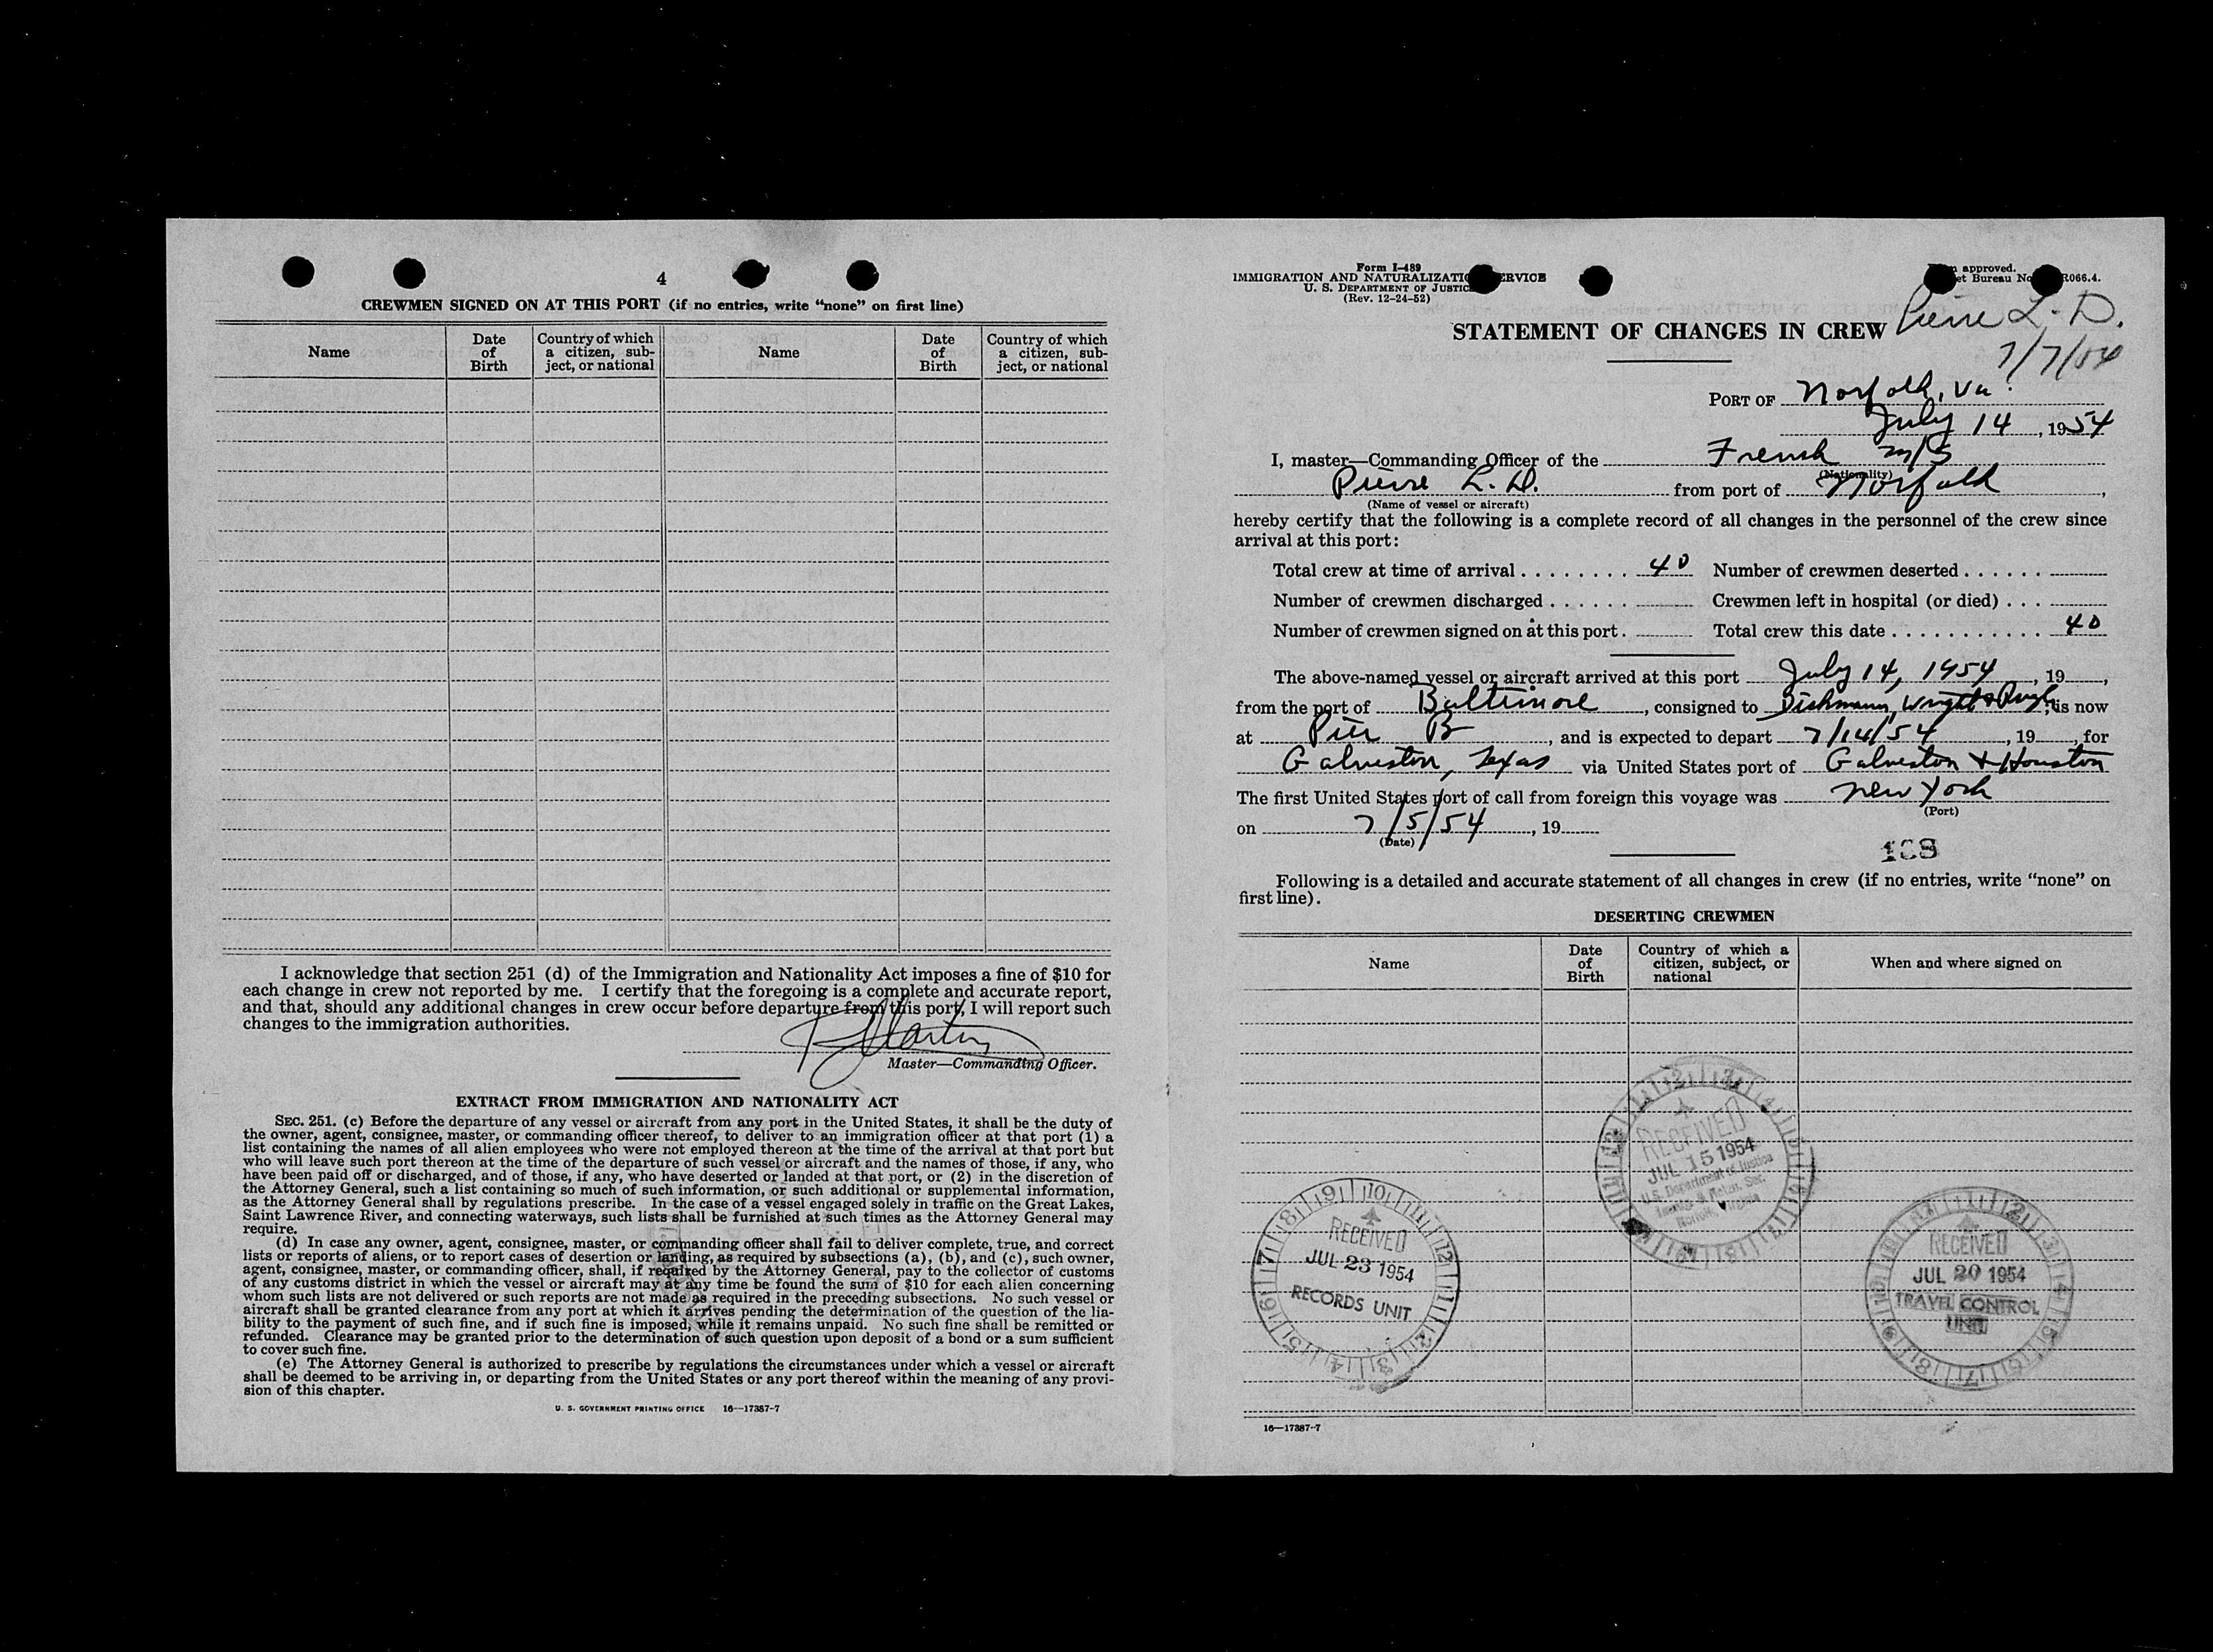 4
CREWMEN SIGNED ON AT THIS PORT (if no entries, write “none” on first line)
Name
Date of Birth
Country of which a citizen, sub-ject, or national
Name
Date of Birth
Country of which a citizen, sub-ject, or national
I acknowledge that section 251 (d) of the Immigration and Nationality Act imposes a fine of $10 for
each change in crew not reported by me. I certify that the foregoing is a complete and accurate report,
and that, should any additional changes in crew occur before departure from this port, I will report such
changes to the immigration authorities.
Master—Commanding Officer.
EXTRACT FROM IMMIGRATION AND NATIONALITY ACT
SEC. 251. (c) Before the departure of any vessel or aircraft from any port in the United States, it shall be the duty of
the owner, agent, consignee, master, or commanding officer thereof, to deliver to an immigration officer at that port (1) a
list containing the names of all alien employees who were not employed thereon at the time of the arrival at that port but
who will leave such port thereon at the time of the departure of such vessel or aircraft and the names of those, if any, who
have been paid off or discharged, and of those, if any, who have deserted or landed at that port, or (2) in the discretion of
the Attorney General, such a list containing so much of such information, or such additional or supplemental information,
as the Attorney General shall by regulations prescribe. In the case of a vessel engaged solely in traffic on the Great Lakes,
Saint Lawrence River, and connecting waterways, such lists shall be furnished at such times as the Attorney General may
require.
(d) In case any owner, agent, consignee, master, or commanding officer shall fail to deliver complete, true, and correct
lists or reports of aliens, or to report cases of desertion or landing, as required by subsections (a), (b), and (c), such owner,
agent, consignee, master, or commanding officer, shall, if required by the Attorney General, pay to the collector of customs
of any customs district in which the vessel or aircraft may at any time be found the sum of $10 for each alien concerning
whom such lists are not delivered or such reports are not made as required in the preceding subsections. No such vessel or
aircraft shall be granted clearance from any port at which it arrives pending the determination of the question of the lia-
bility to the payment of such fine, and if such fine is imposed, while it remains unpaid. No such fine shall be remitted or
refunded. Clearance may be granted prior to the determination of such question upon deposit of a bond or a sum sufficient
to cover such fine.
(e) The Attorney General is authorized to prescribe by regulations the circumstances under which a vessel or aircraft
shall be deemed to be arriving in, or departing from the United States or any port thereof within the meaning of any provi-
sion of this chapter.
U. S. GOVERNMENT PRINTING OFFICE 16—17387-7
Form I-489
IMMIGRATION AND NATURALIZATI RVICE
U. S. DEPARTMENT OF JUSTIC
(Rev. 12-24-52)
approved.
et Bureau No R066.4.
STATEMENT OF CHANGES IN CREW
Pierre L. D.
7/7/54
PORT OF Norfolk, Va.
July 14, 1954
I, master—Commanding Officer of the French m/s
(Nationality)
Pierre L. D. from port of Norfolk,
(Name of vessel or aircraft)
hereby certify that the following is a complete record of all changes in the personnel of the crew since
arrival at this port:
Total crew at time of arrival ........ 40 Number of crewmen deserted ......
Number of crewmen discharged ...... Crewmen left in hospital (or died) ...
Number of crewmen signed on at this port. Total crew this date ........... 40
The above-named vessel or aircraft arrived at this port July 14, 1954, 19,
from the port of Baltimore, consigned to Dichmann, Wright & Pugh, is now
at Pier B, and is expected to depart 7/14/54, 19, for
Galveston, Texas via United States port of Galveston & Houston
The first United States port of call from foreign this voyage was New York
(Port)
on 7/5/54, 19
(Date)
108
Following is a detailed and accurate statement of all changes in crew (if no entries, write “none” on
first line).
DESERTING CREWMEN
Name
Date of Birth
Country of which a citizen, subject, or national
When and where signed on
RECEIVED
JUL 15 1954
U.S. Department of Justice
Norfolk, Virginia
RECEIVED
JUL 23 1954
RECORDS UNIT
RECEIVED
JUL 20 1954
TRAVEL CONTROL
UNIT
16—17387-7